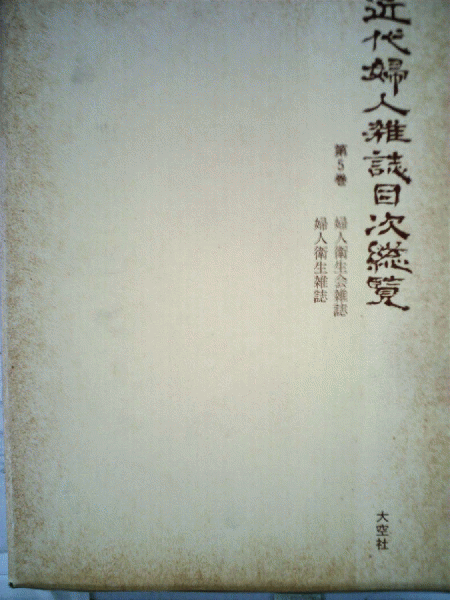 近代婦人雑誌目次総覧
第5巻
婦人衛生会雑誌
婦人衛生雑誌
大空社